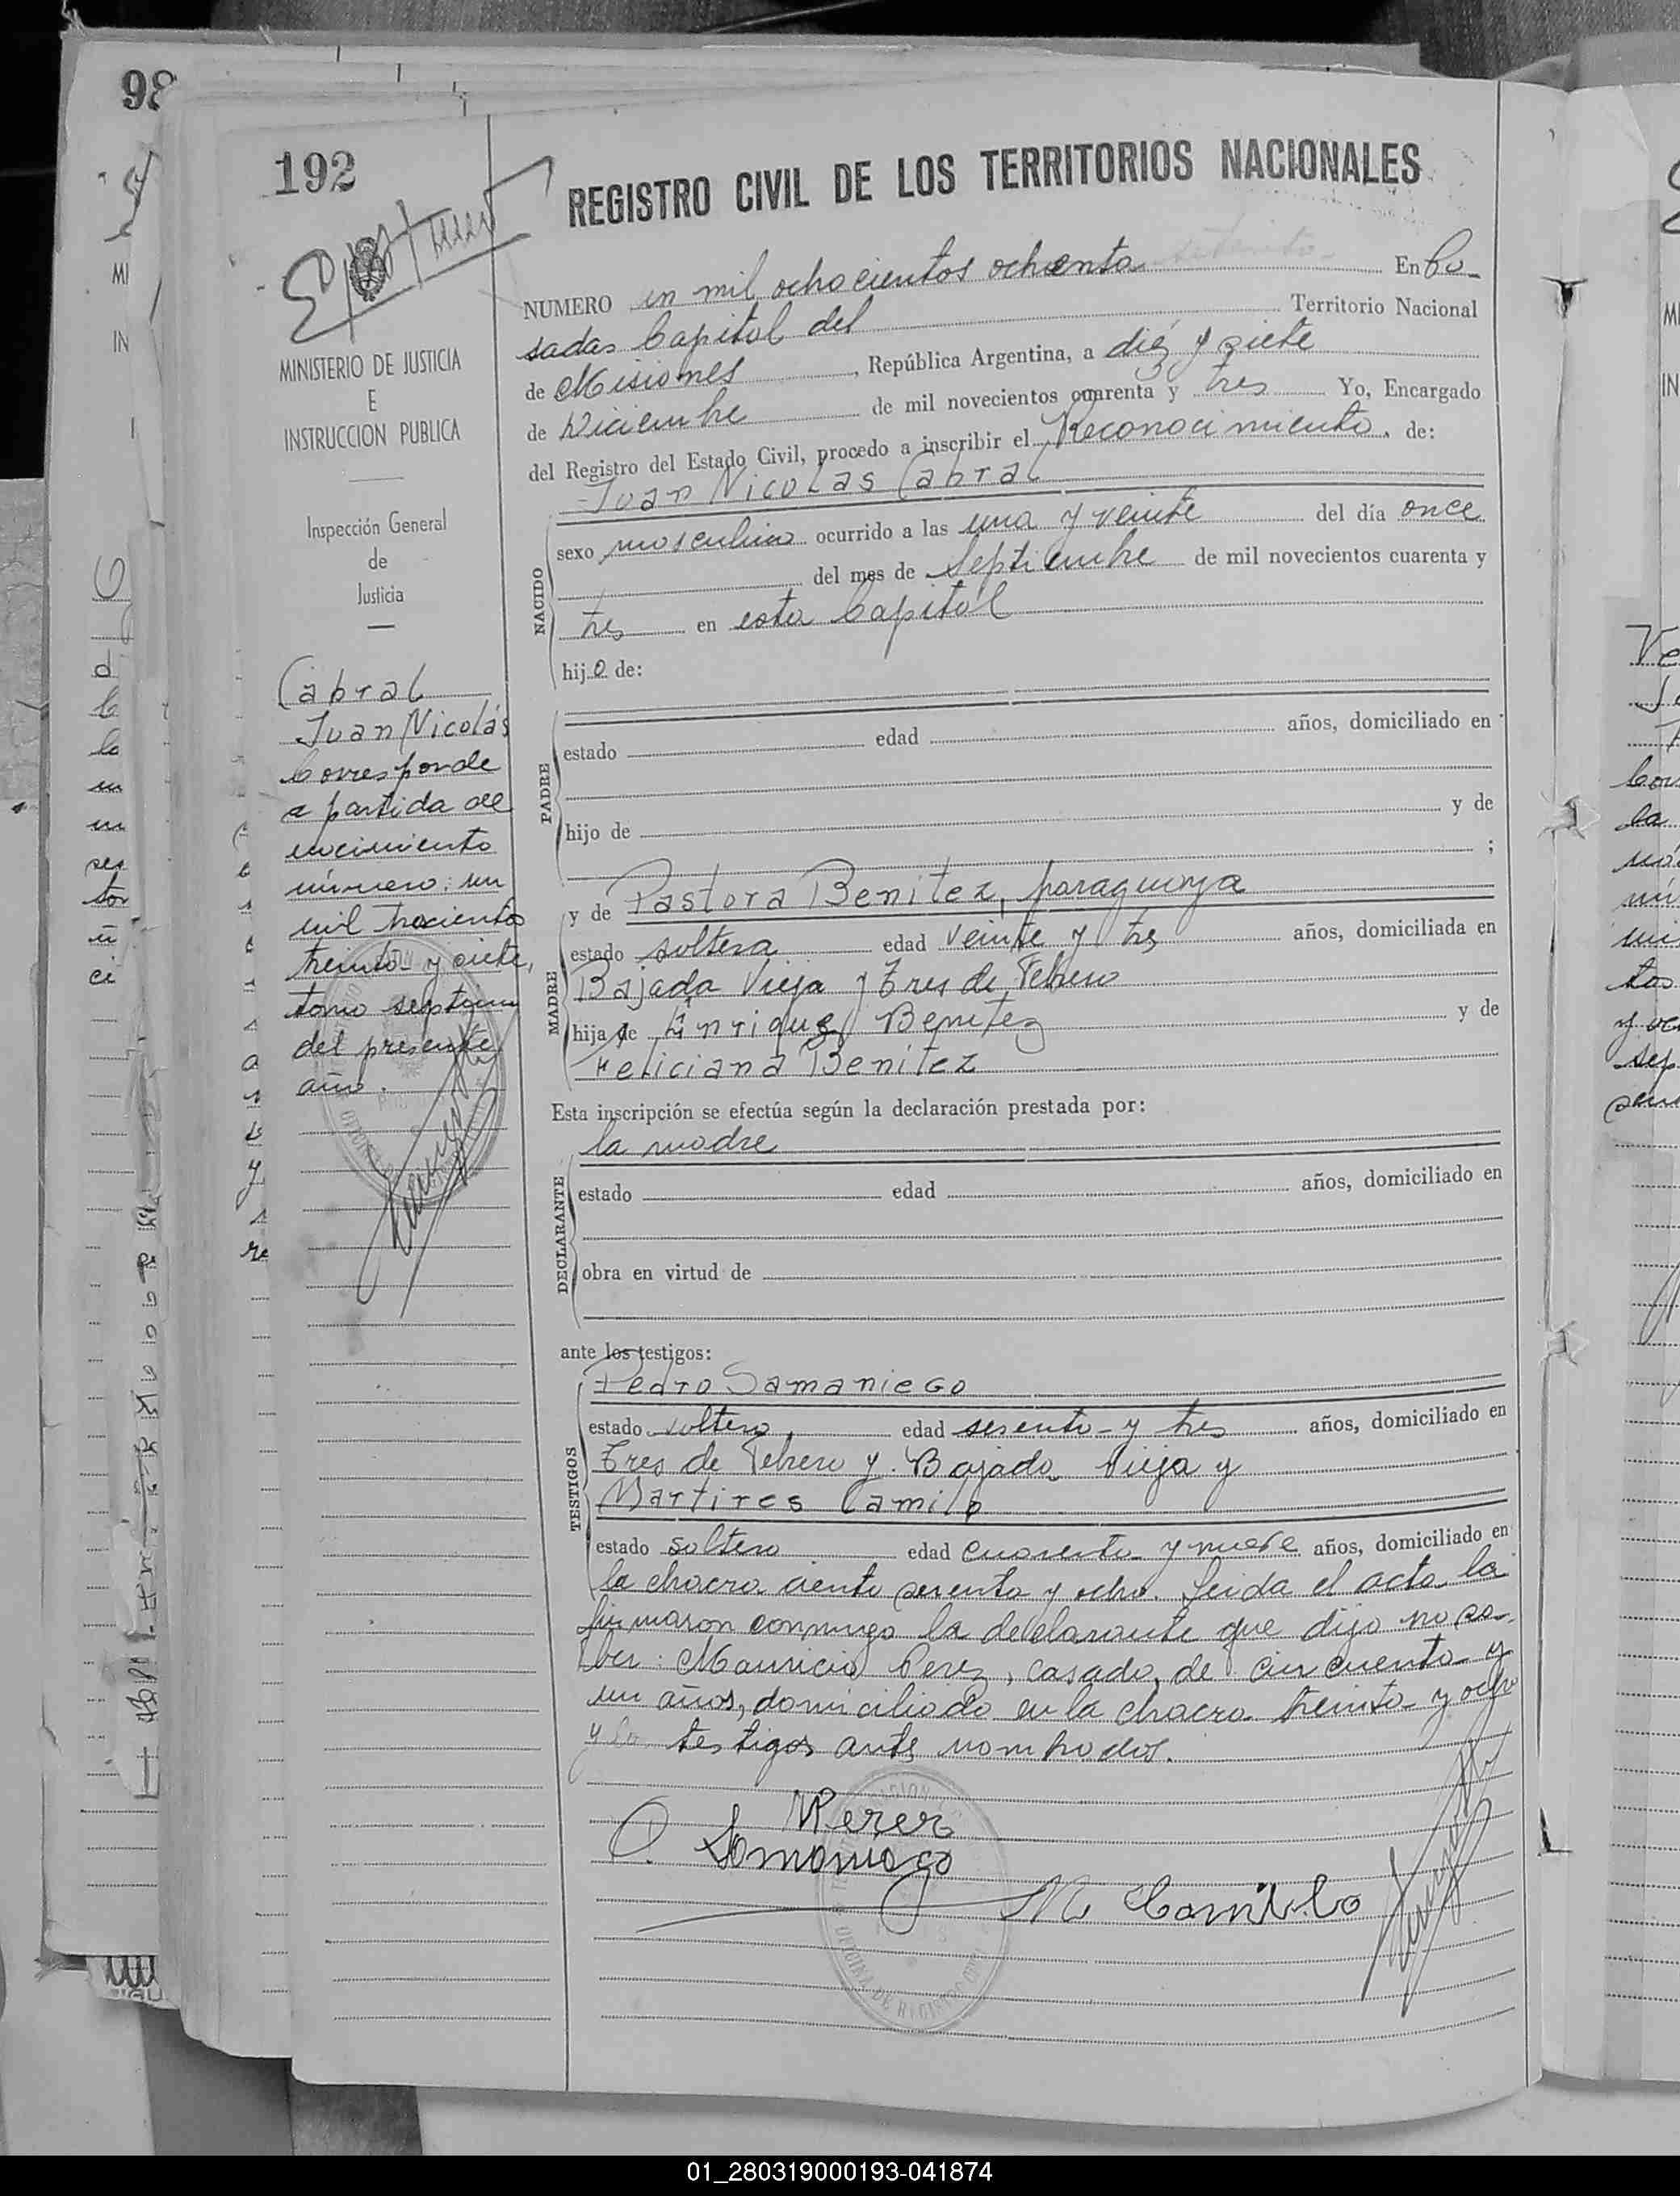 98
192
REGISTRO CIVIL DE LOS TERRITORIOS NACIONALES
NUMERO un mil ochocientos ochenta En Po-
sadas Capital del Territorio Nacional
de Misiones, República Argentina, a diez y siete
de Diciembre de mil novecientos cuarenta y tres Yo, Encargado
del Registro del Estado Civil, procedo a inscribir el Reconocimiento, de:
Juan Nicolas Cabral
NACIDO
sexo masculino ocurrido a las una y veinte del día once
del mes de Septiembre de mil novecientos cuarenta y
tres en esta Capital
hijo de:
PADRE
estado edad años, domiciliado en
hijo de y de
;
MADRE
y de Pastora Benitez, paraguaya
estado soltera edad veinte y tres años, domiciliada en
Bajada Vieja y Tres de Febrero
hija de Enrique Benitez y de
Feliciana Benitez
Esta inscripción se efectúa según la declaración prestada por:
la madre
DECLARANTE
estado edad años, domiciliado en
obra en virtud de
ante los testigos:
TESTIGOS
Pedro Samaniego
estado soltero edad sesenta y tres años, domiciliado en
Tres de Febrero y Bajada Vieja y
Martires Camilo
estado soltero edad cuarenta y nueve años, domiciliado en
la chacra ciento sesenta y ocho. Leida el acta la
firmaron conmigo la declarante que dijo no sa-
ber: Mauricio Perez, casado, de cincuenta y
un años, domiciliado en la chacra treinta y ocho
y los testigos ante nombrados.
MPerez
P. Samaniego
M Camilo
MINISTERIO DE JUSTICIA
E
INSTRUCCION PUBLICA
Inspección General
de
Justicia
Cabral
Juan Nicolás
Corresponde
a partida de
nacimiento
número: un
mil trecientos
treinta y siete,
tomo septimo
del presente
año.
01_280319000193-041874